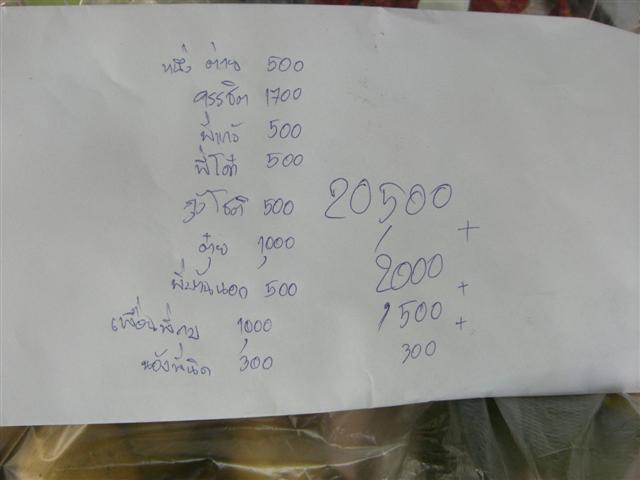 หนึ่ง ต่าย 500
ครรชิต 1700
พี่แก้ว 500
พี่โต๋ 500
โชติ 500
ตุ๋ย 1,000
พี่บ้านนอก 500
เพื่อนพี่กบ 1,000
น้องพี่นิด 300
20,500 +
2000 +
1500 +
300